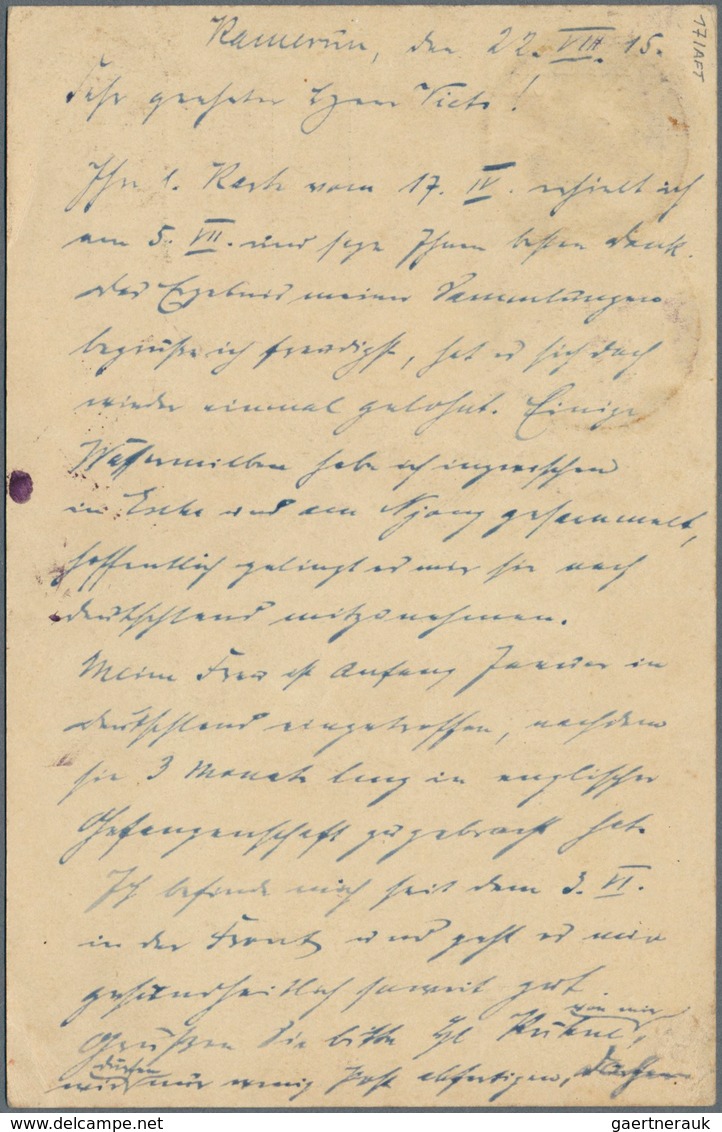 Kamerun, den 22. VIII. 15.
17/AF7
Sehr geehrter Herr Viets!
Ihre l. Karte vom 17. IV. erhielt ich
am 5. VII. und sage Ihnen besten Dank.
Das Ergebnis meiner Sammlungen
begrüße ich freudigst, hat es sich doch
wieder einmal gelohnt. Einige
Wassermilben habe ich inzwischen
in und am Njong gesammelt,
hoffentlich gelingt es mir sie nach
Deutschland mitzunehmen.
Meine Frau ist Anfang Januar in
Deutschland eingetroffen, nachdem
sie 3 Monate lang in englischer
Gefangenschaft zugebracht hat.
Ich befinde mich seit dem 3. VI.
in der Front und geht es mir
gesundheitlich soweit gut.
von mir
Grüßen Sie bitte
dürfen
wir nur wenig Post abfertigen,
gaertnerauk